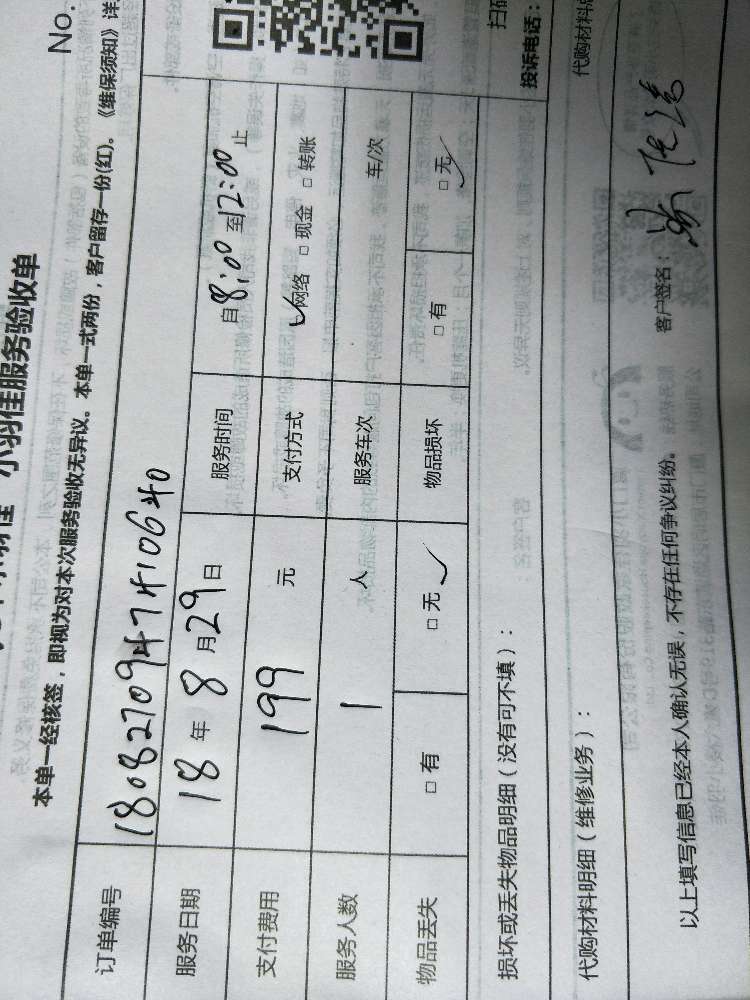 小羽佳服务验收单
No.
本单一经核签，即视为对本次服务验收无异议。本单一式两份，客户留存一份(红)。《维保须知》详
订单编号 180827094747410640
服务日期 18 年 8 月 29 日 服务时间 自 8:00 至 12:00 止
支付费用 199 元 支付方式 ✓网络 □ 现金 □ 转账
服务人数 1 人 服务车次 车/次
物品丢失 □ 有 □ 无 ✓ 物品损坏 □ 有 □ 无 ✓
损坏或丢失物品明细（没有可不填）：
扫
投诉电话：
代购材料明细（维修业务）：
代购材料
以上填写信息已经本人确认无误，不存在任何争议纠纷。 客户签名：